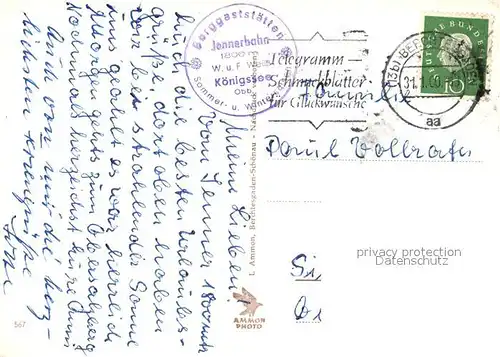 Berggaststätten
Jennerbahn
1800 m
W. u. F.
Königssee
Obb.
Sommer- u. Winter
Telegramm-
Schmuckblätter
für Glückwünsche
(13b) BERCHTESGADEN
31.1.60
aa
DEUTSCHE BUNDESPOST
10
Meine Lieben!
Vom Jenner 1800 mtr
Euch die besten Urlaubs-
grüße, dort oben haben
wir bei strahlender Sonne
es war herrlich
Morgen gehts zum Obersalzberg
Nochmals herzlichst Eure
Auch von mir die herz-
lichsten
Familie
Paul Vollrath
Si
L. Ammon, Berchtesgaden-Schönau
AMMON
PHOTO
567
privacy protection
Datenschutz